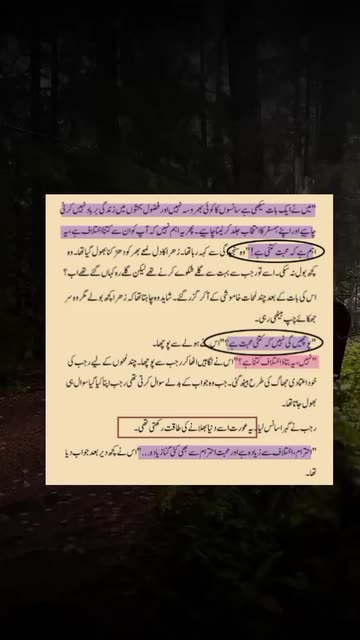 "میں نے ایک بات سیکھی ہے سانسوں کا کوئی بھروسہ نہیں اور فضول بحثوں میں زندگی برباد نہیں کرنی
چاہیے اور اپنے ہمسفر کا انتخاب جلد کر لینا چاہیے۔ پھر یہ اہم نہیں کہ آپ کو ان سے کتنا اختلاف ہے، یہ
اہم ہے کہ محبت کتنی ہے!" وہ سنجیدگی سے کہہ رہا تھا۔ زھرا کا دل لمحے بھر کو دھڑکنا بھول گیا تھا۔ وہ
کچھ بول نہ سکی۔ اسے تو رجب سے بہت سے گلے شکوے کرنے تھے لیکن گلے رہ کہاں گئے تھے اب؟
اس کی بات کے بعد چند لمحات خاموشی کے آ کر گزر گئے۔ شاید وہ چاہتا تھا کہ زھرا کچھ بولے مگر وہ سر
جھکائے چپ بیٹھی رہی۔
"پوچھیں گی نہیں کہ کتنی محبت ہے؟" اس نے ہولے سے پوچھا۔
"نہیں، یہ بتاؤ اختلاف کتنا ہے؟" اس نے نگاہیں اٹھا کر رجب سے پوچھا۔ چند لمحوں کے لیے رجب کی
خود اعتمادی جھاگ کی طرح بیٹھ گئی۔ جب وہ جواب کے بدلے سوال کرتی تھی رجب اپنا کیا گیا سوال ہی
بھول جاتا تھا۔
رجب نے گہرا سانس لیا۔ یہ عورت اسے دنیا بھلانے کی طاقت رکھتی تھی۔
"احترام، اختلاف سے زیادہ ہے اور محبت احترام سے بھی کئی گنا زیادہ۔۔۔" اس نے کچھ دیر بعد جواب دیا
تھا۔